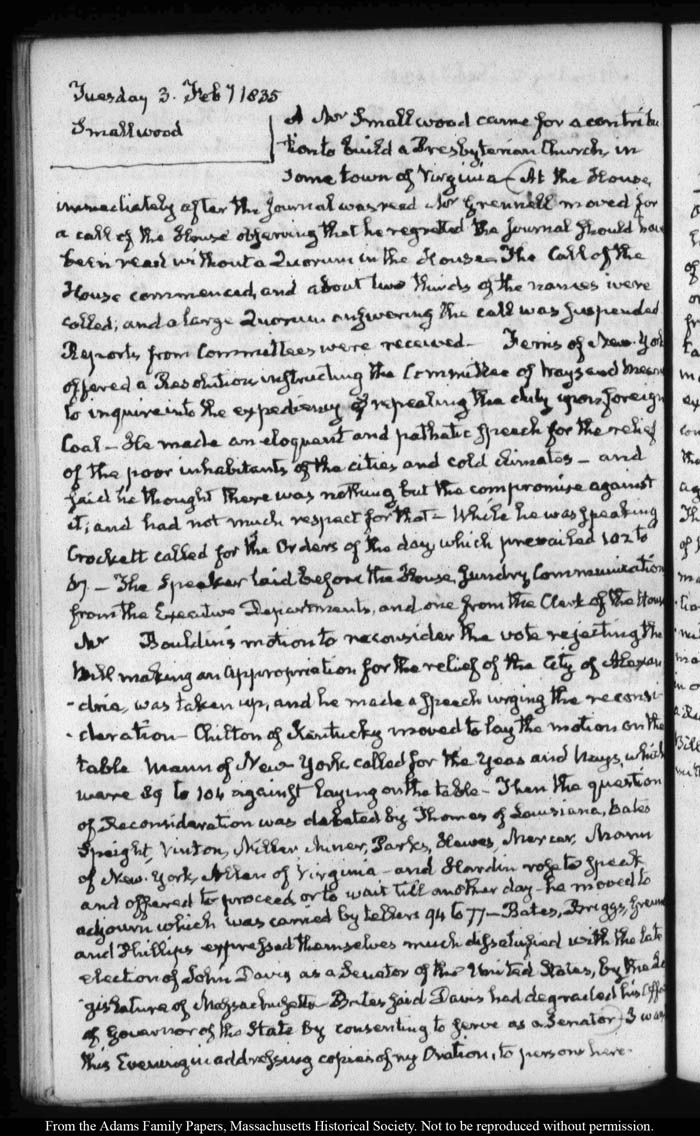 Tuesday 3. Feby 1835
Smallwood
A Mr Smallwood came for a contribu
tion to build a Presbyterian Church, in
some town of Virginia— At the House,
immediately after the Journal was read Mr Grennell moved for
a call of the House observing that he regretted the Journal should have
been read without a Quorum in the House— The Call of the
House commenced, and about two thirds of the names were
called, and a large Quorum answering the call was suspended
Reports from Committees were received— Ferris of New-York
offered a Resolution instructing the Committee of Ways and Means
to inquire into the expediency of repealing the duty upon foreign
Coal— He made an eloquent and pathetic speech for the relief
of the poor inhabitants of the cities and cold climates— and
said he thought there was nothing but the compromise against
it; and had not much respect for that— While he was speaking
Crockett called for the Orders of the day, which prevailed 102 to
57.— The Speaker laid before the House, sundry Communications
from the Executive Departments, and one from the Clerk of the House
Mr Bouldin's motion to reconsider the vote rejecting the
Bill making an appropriation for the relief of the City of Alexan
-dria, was taken up, and he made a speech urging the reconsi-
-deration— Chilton of Kentucky moved to lay the motion on the
table Mann of New-York called for the Yeas and Nays, which
were 89 to 104 against laying on the table— Then the question
of Reconsideration was debated by Thomas of Louisiana, Bates
Speight, Vinton, Miller Miner, Parks, Hawes, Mercer, Mann
of New-York, Allen of Virginia— and Hardin rose to speak
and offered to proceed, or to wait till another day— he moved to
adjourn which was carried by tellers 94 to 77— Bates, Briggs, Grennell
and Phillips expressed themselves much dissatisfied with the late
election of John Davis as a Senator of the United States, by the Le
-gislature of Massachusetts— Bates said Davis had degraded his Office
of Governor of the State by consenting to serve as a Senator— I was
this Evening in addressing copies of my Oration, to persons here.
From the Adams Family Papers, Massachusetts Historical Society. Not to be reproduced without permission.